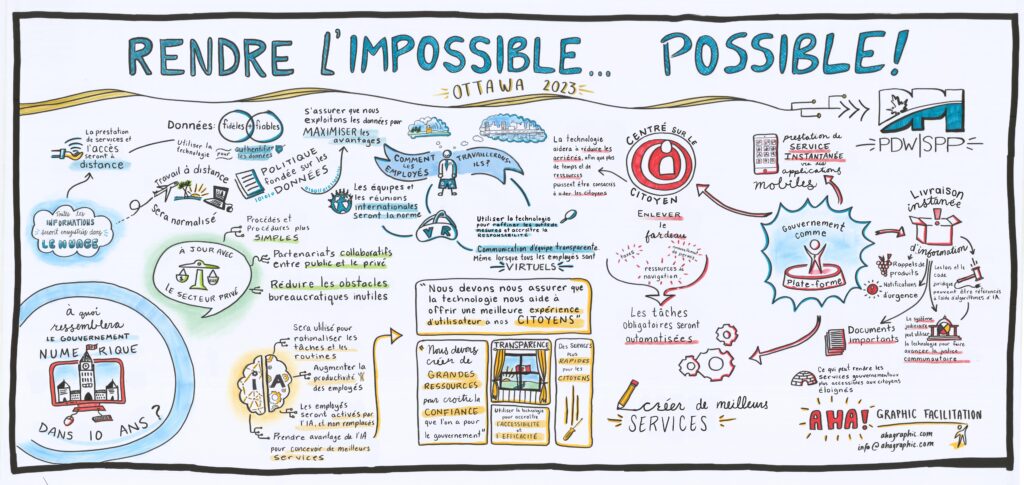 RENDRE L'IMPOSSIBLE... POSSIBLE!
OTTAWA 2023
PDW|SPP
La prestation
de services et
l'accès
seront à
distance
Données:
fidèles + fiables
Utiliser la
technologie pour
authentifier
les données
Travail à distance
Sera normalisé
POLITIQUE
fondée sur les
DONNÉES
S'assurer que nous
exploitons les données pour
MAXIMISER les
avantages
INFORMATIONS
LE NUAGE
À JOUR AVEC
LE SECTEUR PRIVÉ
Procédés et
Procédures plus
SIMPLES
Partenariats collaboratifs
entre public et le privé
Réduire les obstacles
bureaucratiques inutiles
COMMENT
LES
EMPLOYÉS
TRAVAILLERONS-
ILS?
Les équipes et
les réunions
internationales
seront la norme
VR
Utiliser la technologie
mesures et accroître la
RESPONSABILITÉ
Communication d'équipe transparente
Même lorsque tous les employés sont
VIRTUELS
La technologie
aidera à réduire les
arriérés, afin que plus
de temps et de
ressources
puissent être consacrés
à aider les citoyens
CENTRÉ SUR LE
CITOYEN
ENLEVER
le
fardeau
ressources de
navigation
Les tâches
obligatoires seront
automatisées
prestation de
SERVICE
INSTANTANÉE
via des
applications
mobiles
Gouvernement
comme
plate-forme
Livraison
instantée
d'information
Rappels de
produits
Notifications
d'urgence
Les lois et le
code
juridique
peuvent être référencés
à l'aide d'algorithmes d'IA
Le système
judiciaire
peut utiliser
la technologie pour faire
avancer la police
communautaire
Documents
importants
Ce qui peut rendre les
services gouvernementaux
plus accessibles aux citoyens
éloignés
À quoi
ressemblera
LE GOUVERNEMENT
NUMÉRIQUE
DANS 10 ANS?
IA
Sera utilisé pour
rationaliser les
tâches et les
routines
Augmenter la
productivité
des employés
Les employés
seront activés par
l'IA, et non remplacés
Prendre avantage de l'IA
pour concevoir de meilleurs
services
"Nous devons nous assurer que
la technologie nous aide à
offrir une meilleure expérience
d'utilisateur à nos CITOYENS"
"Nous devons
créer de
GRANDES
RESSOURCES
pour croître la
CONFIANCE
que l'on a pour
le gouvernement"
TRANSPARENCE
Utiliser la technologie
pour accroître
L'ACCESSIBILITÉ
et
L'EFFICACITÉ
DES SERVICES
PLUS
RAPIDES
pour les
CITOYENS
créer de meilleurs
SERVICES
AHA! GRAPHIC FACILITATION
ahagraphic.com
info@ahagraphic.com